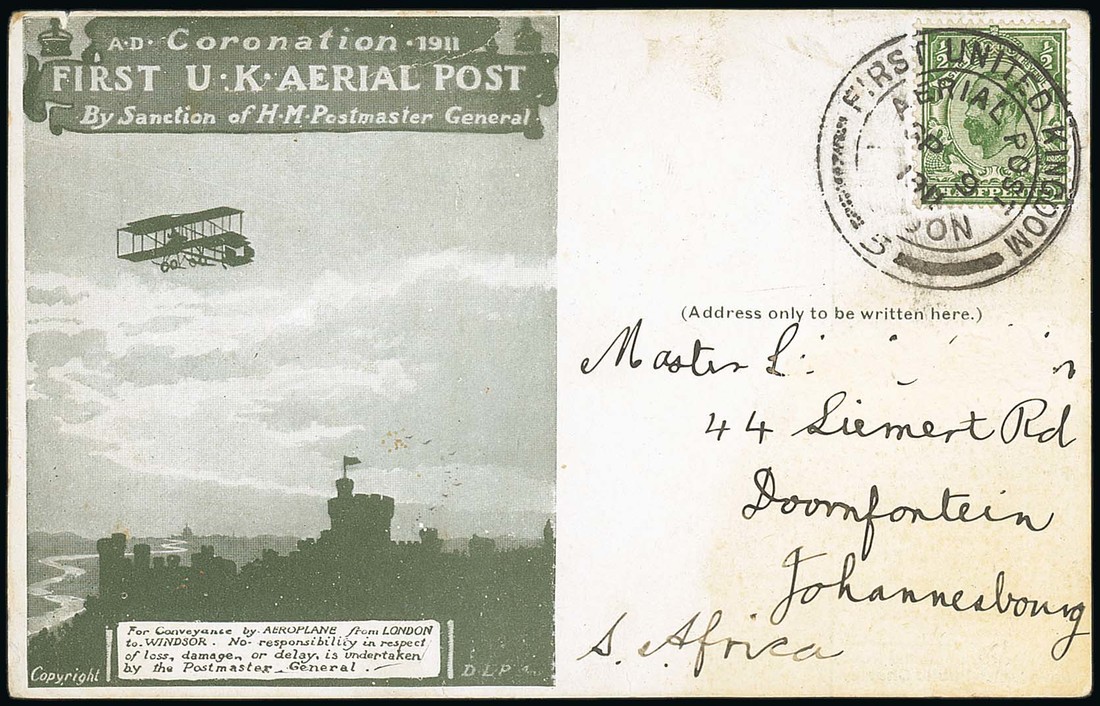 A·D· Coronation · 1911
FIRST U·K·AERIAL POST
By Sanction of H·M·Postmaster General·
For Conveyance by AEROPLANE from LONDON
to WINDSOR. No responsibility in respect
of loss, damage, or delay, is undertaken
by the Postmaster General.
Copyright
D·L·P
FIRST UNITED KINGDOM
AERIAL POST
SP 9
5
1/2
1/2
(Address only to be written here.)
Master
44 Siemert Rd
Doornfontein
Johannesbourg
S. Africa